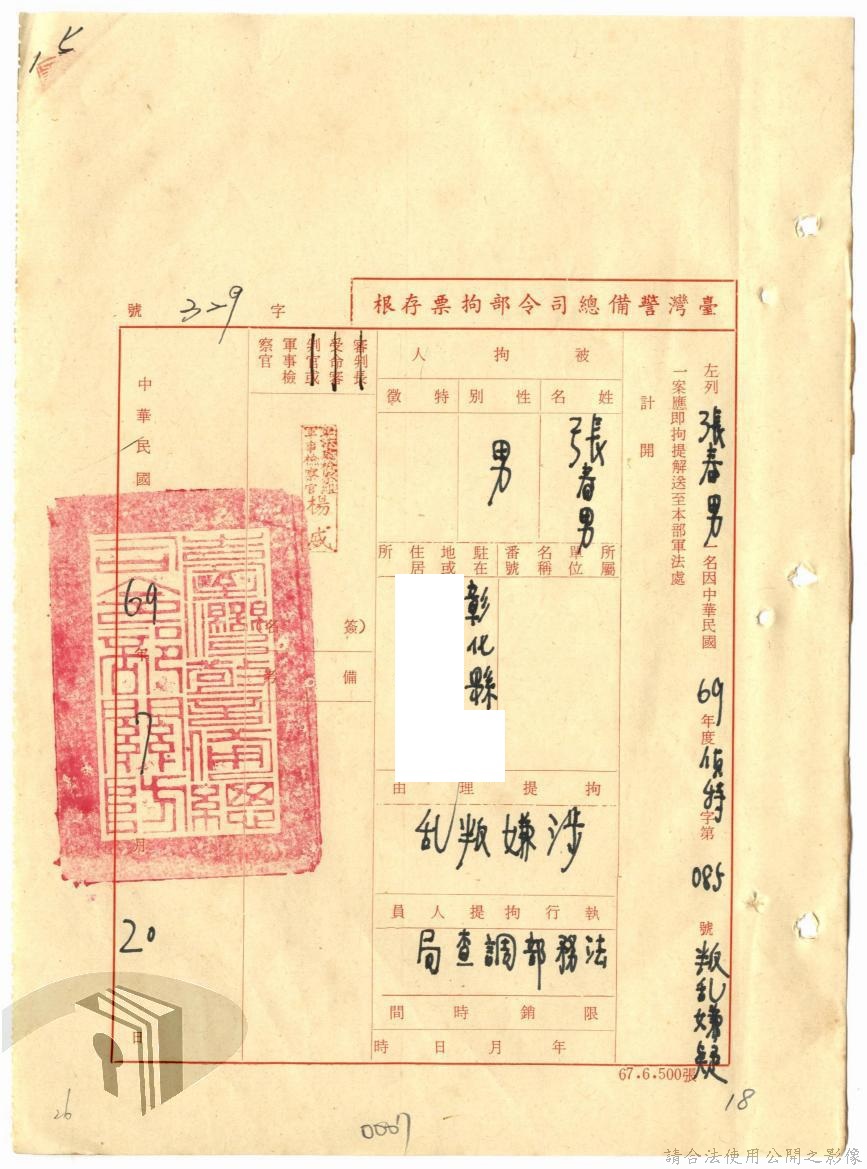 15
臺灣警備總司令部拘票存根
字 329 號
左列 張春男 一名因中華民國 69 年度 偵特 字第 085 號 叛乱嫌疑
一案應即拘提解送至本部軍法處
計開
被拘人
姓名
張春男
性別
男
特徵
所屬單位名稱番號
駐在地或住居所
彰化縣
拘提理由
涉嫌叛乱
執行拘提人員
法務部調查局
限銷時間
年月日時
審判長
受命審
判官或
軍事檢
察官
軍事檢察官 楊威
(簽名)
備考
臺灣警備總司令部關防
中華民國 69 年 7 月 20 日
67.6.500張
26
0007
18
請合法使用公開之影像